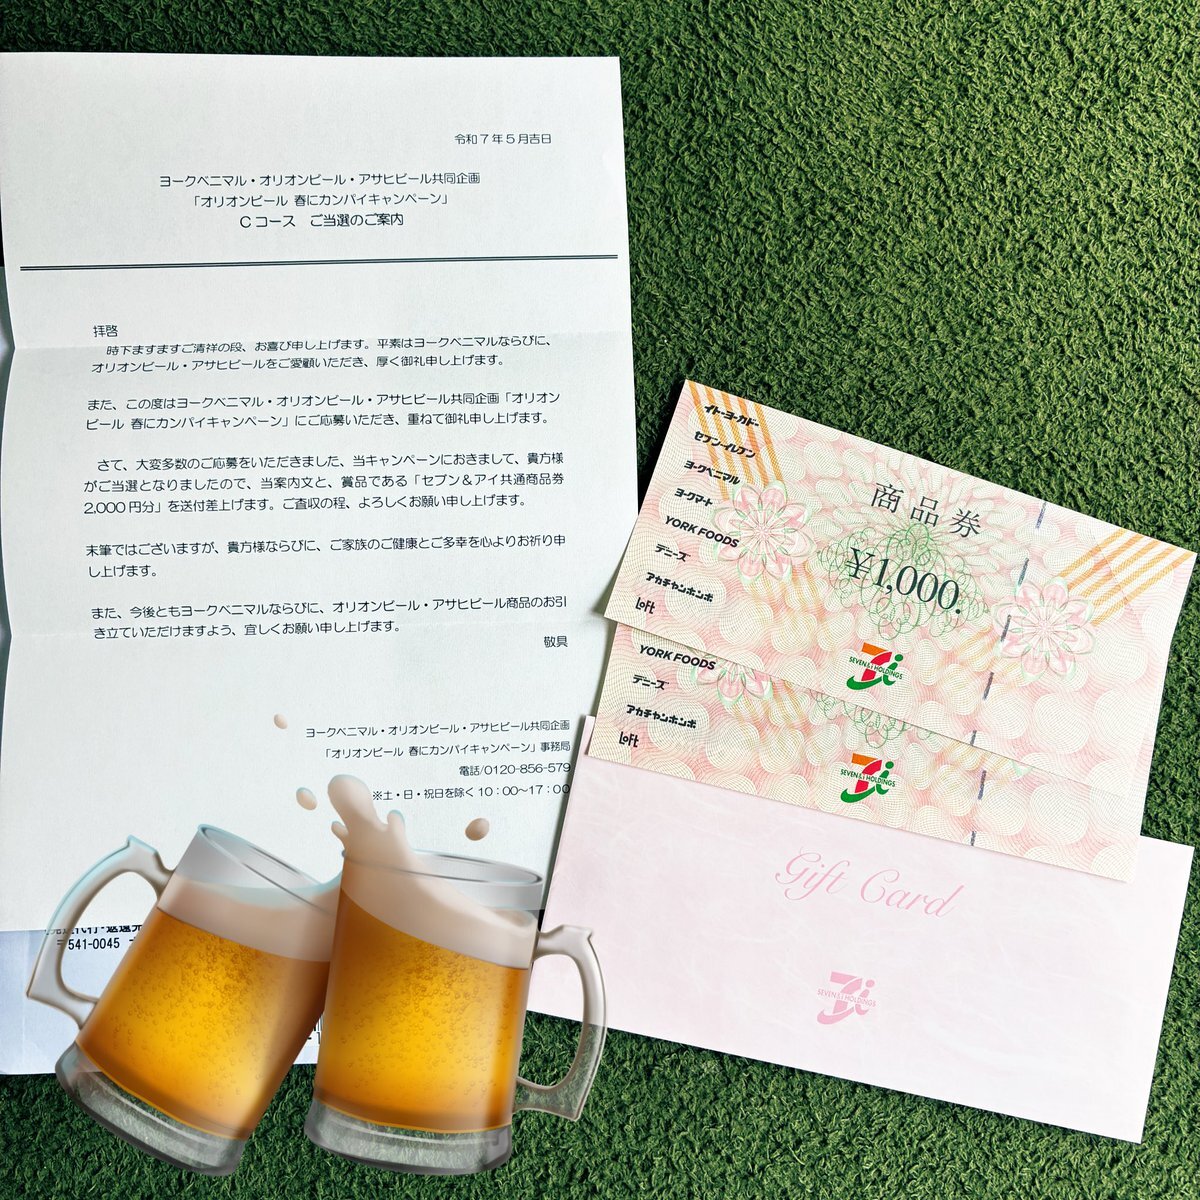 令和7年5月吉日
ヨークベニマル・オリオンビール・アサヒビール共同企画
「オリオンビール 春にカンパイキャンペーン」
Cコース ご当選のご案内
拝啓
時下ますますご清祥の段、お喜び申し上げます。平素はヨークベニマルならびに、
オリオンビール・アサヒビールをご愛顧いただき、厚く御礼申し上げます。
また、この度はヨークベニマル・オリオンビール・アサヒビール共同企画「オリオン
ビール 春にカンパイキャンペーン」にご応募いただき、重ねて御礼申し上げます。
さて、大変多数のご応募をいただきました、当キャンペーンにおきまして、貴方様
がご当選となりましたので、当案内文と、賞品である「セブン&アイ共通商品券
2,000円分」を送付差上げます。ご査収の程、よろしくお願い申し上げます。
末筆ではございますが、貴方様ならびに、ご家族のご健康とご多幸を心よりお祈り申
し上げます。
また、今後ともヨークベニマルならびに、オリオンビール・アサヒビール商品のお引
き立ていただけますよう、宜しくお願い申し上げます。
敬具
ヨークベニマル・オリオンビール・アサヒビール共同企画
「オリオンビール 春にカンパイキャンペーン」事務局
電話/0120-856-579
※土・日・祝日を除く10:00~17:00
〒541-0045
イトーヨーカドー
セブン-イレブン
ヨークベニマル
ヨークマート
YORK FOODS
デニーズ
アカチャンホンポ
LOFT
商品券
¥1,000.
SEVEN & i HOLDINGS
YORK FOODS
デニーズ
アカチャンホンポ
LOFT
SEVEN & i HOLDINGS
Gift Card
SEVEN & i HOLDINGS